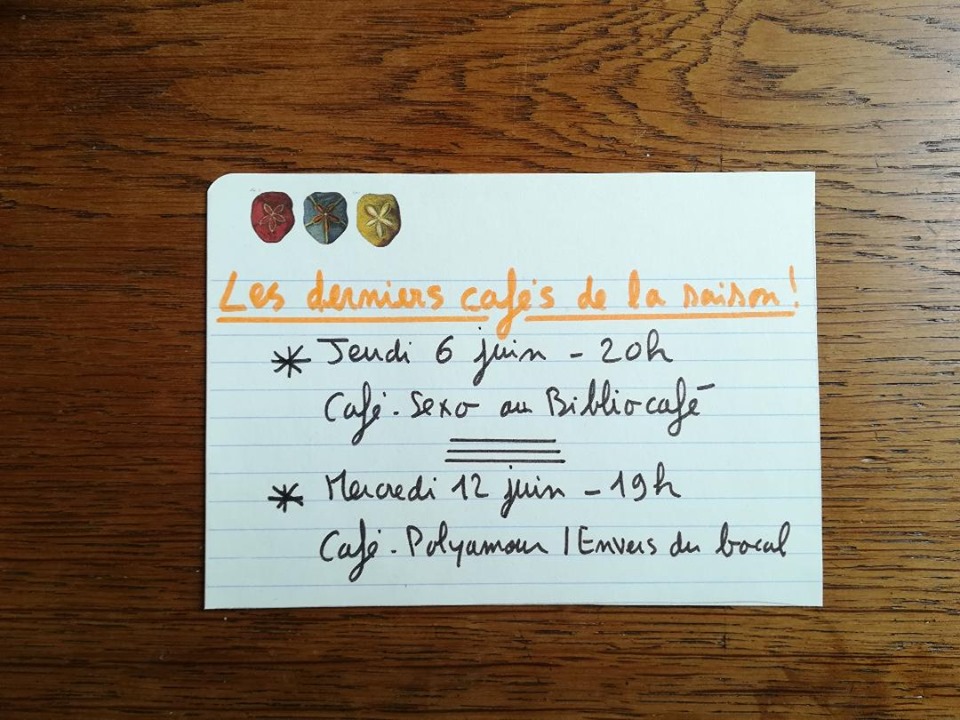 Les derniers cafés de la saison !
* Jeudi 6 juin - 20h
Café-Sexo au Bibliocafé
* Mercredi 12 juin - 19h
Café-Polyamour l Envers du bocal